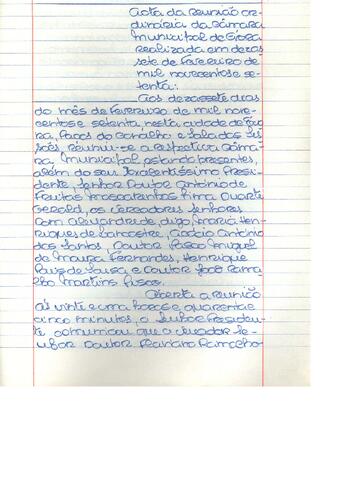 Acta da Reunião or-
dinária da Câmara
Municipal de Évora
realizada em dezas
sete de Fevereiro de
mil novecentos e se-
tenta:
Aos dezassete dias
do mês de Fevereiro de mil nove-
centos e setenta, nesta cidade de Évo-
ra, Paços do Concelho e Sala das Ses-
sões, reuniu-se a respectiva Câma-
ra Municipal estando presentes,
além do seu Excelentíssimo Presi-
dente, Senhor Doutor António de
Freitas Mascarenhas Lima Duarte
Gerald, os vereadores Senhores
Dom Alexandre, digo, Maria Hen-
riques de Lancastre, António
dos Santos, Doutor Miguel
de Moura Fernandes, Henrique
de Sousa e Doutor José Rama-
lho Martins.
Aberta a reunião
ás vinte e uma horas e quarenta e
cinco minutos, o Senhor Presiden-
te comunicou que o vereador Se-
nhor Doutor